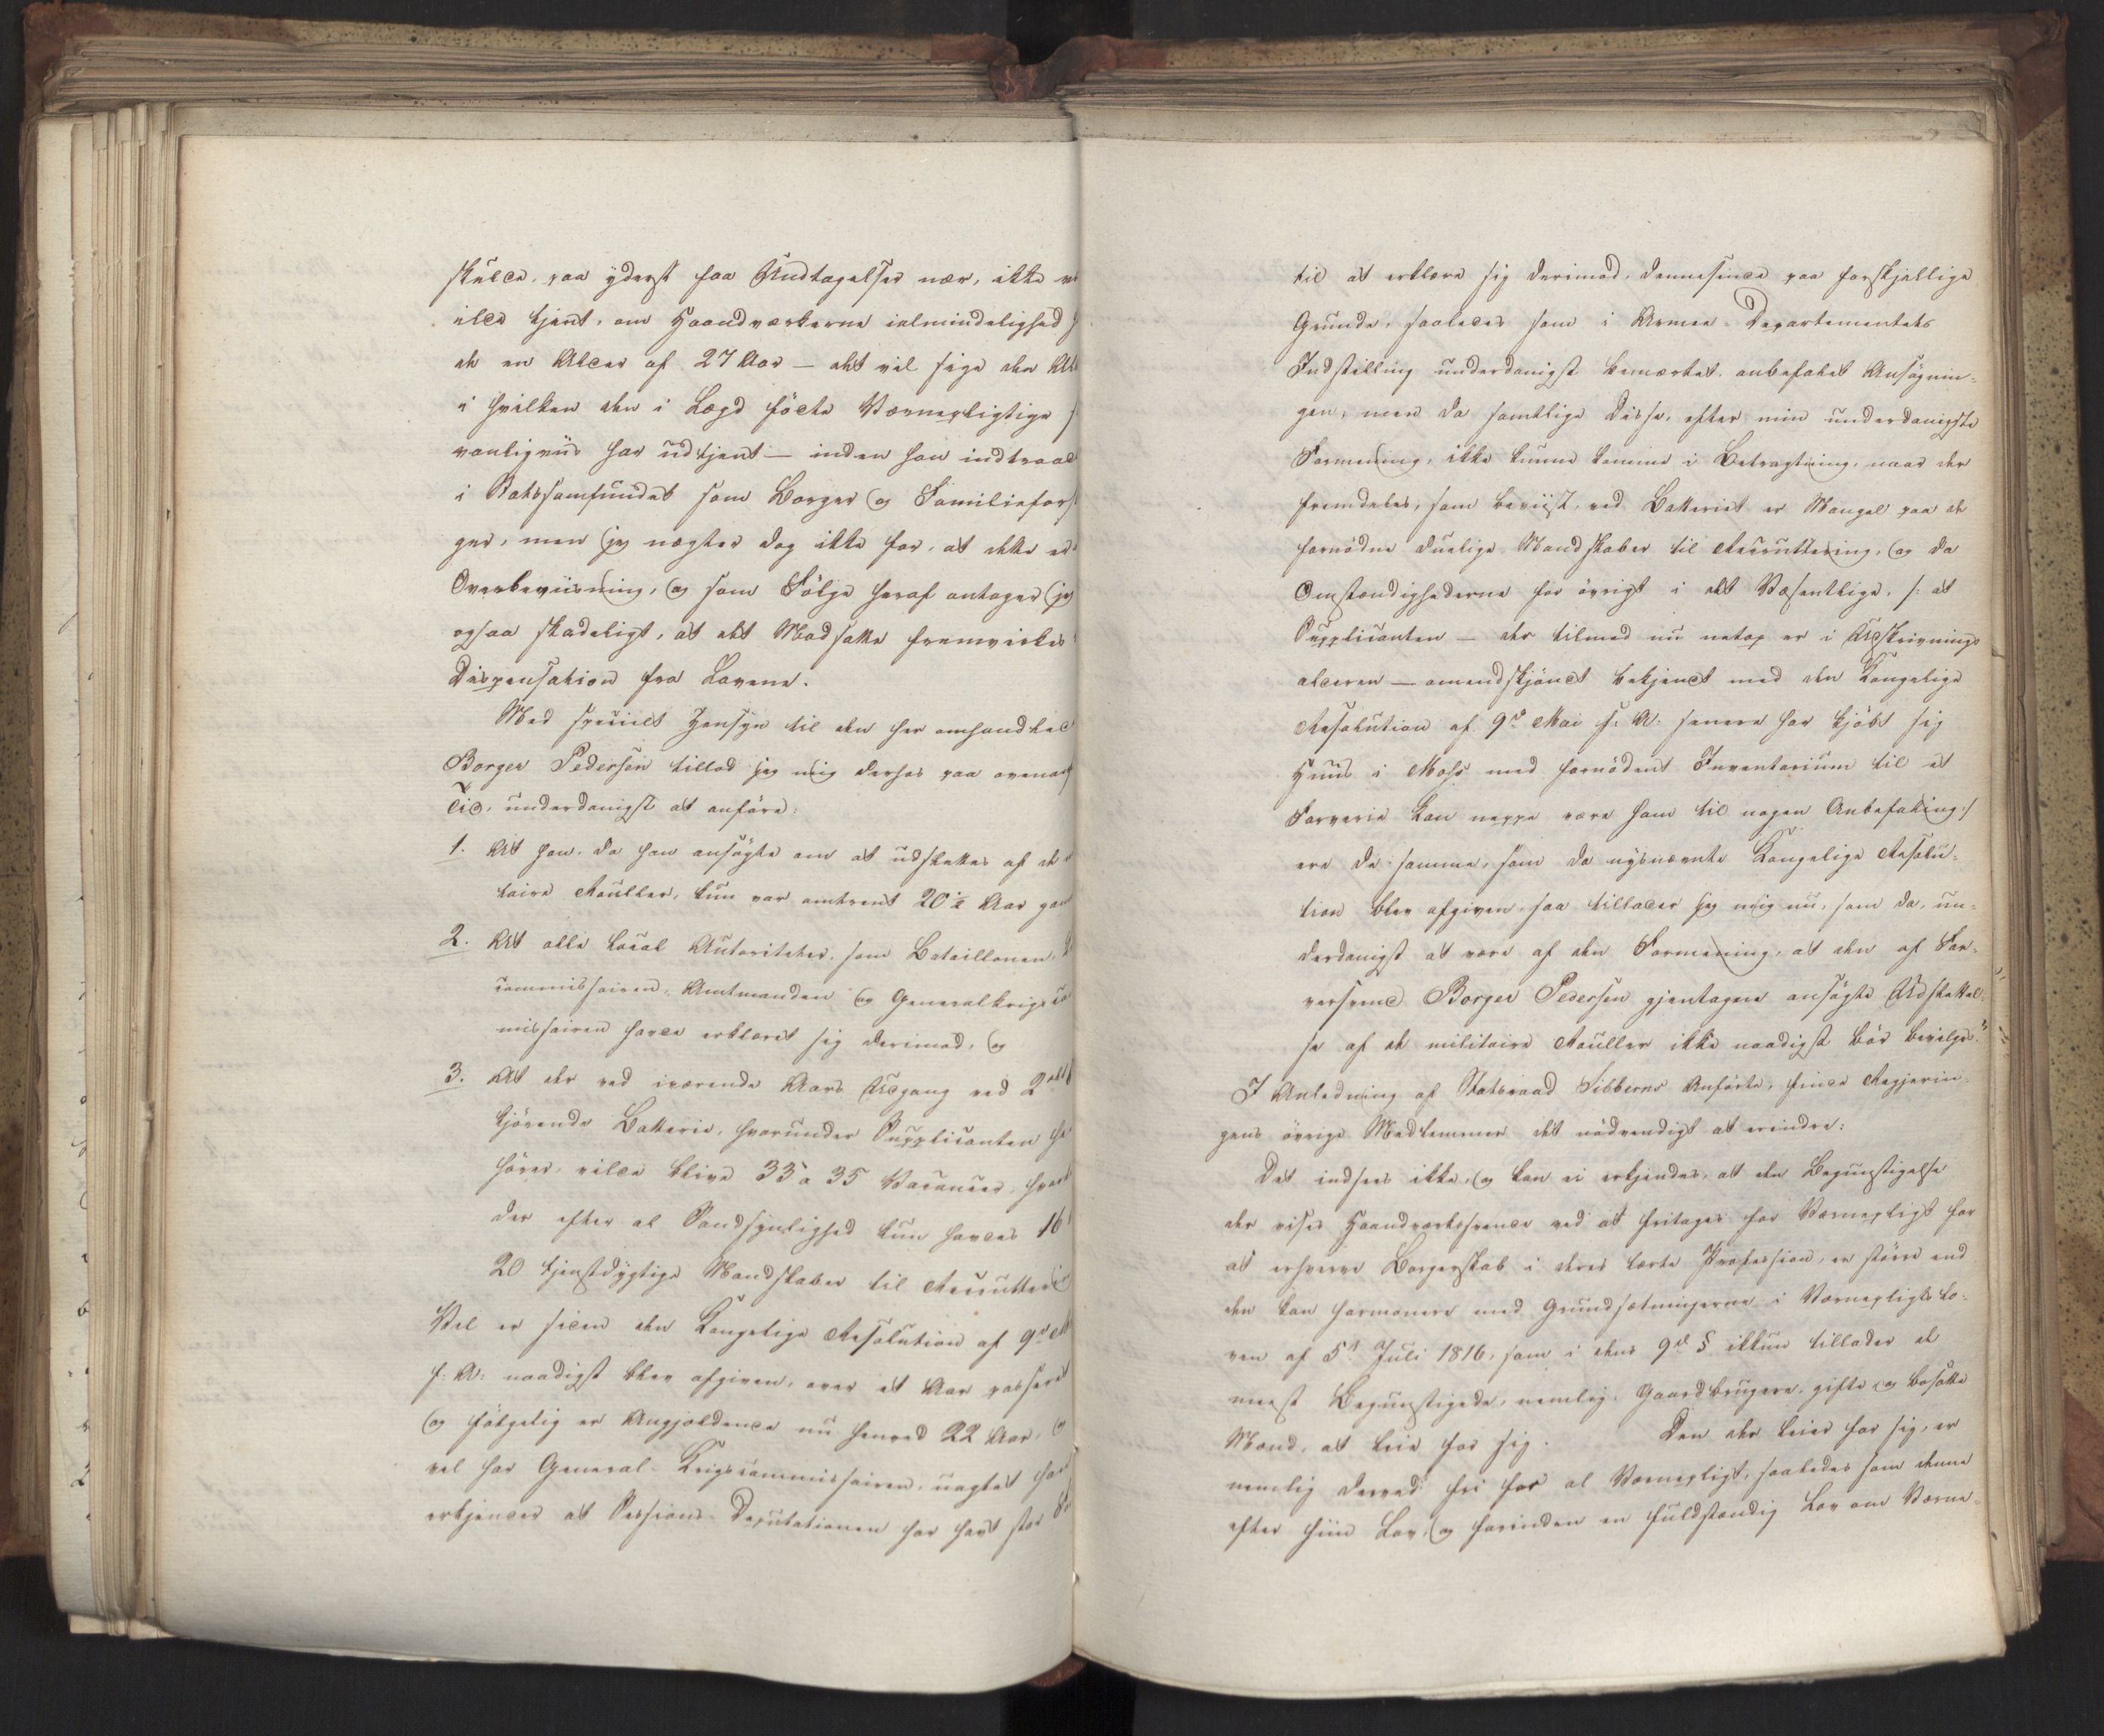 skulde, paa yderst faa Undtagelser nær, ikke
ilde tjent, om Haandværkerne ialmindelighed
de en Alder af 27 Aar – det vil sige den
i hvilken den i Lægd födte Værnepligtige
vanligviis har udtjent – inden han indtraad
i Statssamfundet som Borger og Familiefor
ger, men jeg nægter dog ikke for, at dette er
Overbeviisning, og som Fölge heraf antager jeg
ogsaa skadeligt, at det Modsatte fremvirkes
Dispensation fra Lovene.
Med speciel Hensyn til den her omhandlede
Borger Pedersen tillod jeg mig derhos paa ovenan
Tid, underdanigst at anföre:
1. At han, da han ansögte om at udslettes af de
taire Rouller, kun var omtrent 20½ Aar gam
2. At alle Local Autoriteter, som Bataillonen,
commissairen, Amtmanden og Generalkrigsco
missairen havde erklæret sig derimod, og
3. At der ved iværende Aars Udgang ved 2det
kjörende Batterie, hvorunder Supplicanten
hörer, vilde blive 33 a 35 Vacancer,
der efter al Sandsynlighed kun havdes 16
20 tjenstdygtige Mandskaber til Recruttering
Vel er siden den Kongelige Resolution af 9de
f: A: naadigst blev afgiven, over et Aar passeret
og fölgelig er Angjældende nu henved 22 Aar,
vel har General-Krigscommissairen, uagtet han
erkjender at Sessions-Deputationen har havt stor
til at erklære sig derimod, dennesinde paa forskjellige
Grunde, saaledes som i Armee-Departementets
Indstilling underdanigst bemærket, anbefalet Ansögnin-
gen; men da samtlige Disse, efter min underdanigste
Formening, ikke kunne komme i Betragtning, naar der
fremdeles, som beviist, ved Batteriet er Mangel paa de
fornödne duelige Mandskaber til Recruttering, og da
Omstændighederne for övrigt i det Væsentlige, /: at
Supplicanten – der tilmed nu netop er i Udskrivnings
alderen – omendskjöndt bekjendt med den Kongelige
Resolution af 9de Mai f: A: senere har kjöbt sig
Huus i Moss med fornödent Inventarium til et
Farverie kan neppe være ham til nogen Anbefaling :/
ere de samme, som da nysnævnte Kongelige Resolu-
tion blev afgiven, saa tillader jeg mig nu, som da, un-
derdanigst at være af den Formening, at den af Far-
versvend Borger Pedersen gjentagne ansögte Udslettel-
se af de militaire Rouller ikke naadigst bör bevilges."
I Anledning af Statsraad Sibberns Anförte, finde Regjerin-
gens övrige Medlemmer det nödvendigt at erindre:
Det indsees ikke, og kan ei erkjendes, at den Begunstigelse
der vises Haandværkssvende ved at fritages for Værnepligt for
at erhverve Borgerskab i deres lærte Profession, er större end
den kan harmonere med Grundsætningerne i Værnepligtslo-
ven af 5te Juli 1816, som i dens 9de § ikkun tillader de
meest Begunstigede, nemlig: Gaardbrugere, gifte og bosatte
Mænd, at leie for sig. Den der leier for sig, er
nemlig derved fri for al Værnepligt, saaledes som denne
efter hiin Lov, og forinden en fuldstændig Lov om Værne-